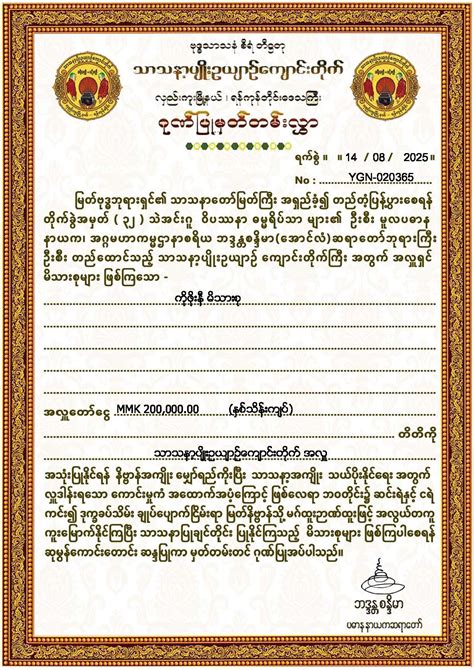 ဗုဒ္ဓသာသနံ စိရံ တိဋ္ဌတု
သာသနာ့ပျိုးဥယျာဉ်ကျောင်းတိုက်
လှည်းကူးမြို့နယ် ၊ ရန်ကုန်တိုင်းဒေသကြီး
ဂုဏ်ပြုမှတ်တမ်းလွှာ
ရက်စွဲ ။ ။ 14 / 08 / 2025။
No : YGN-020365
မြတ်ဗုဒ္ဓဘုရားရှင်၏ သာသနာတော်မြတ်ကြီး အရှည်ခံ့၍ တည်တံ့ပြန့်ပွားစေရန်
တိုက်ခွဲအမှတ် (၃၂) သဲအင်းဂူ ဝိပဿနာ ဓမ္မရိပ်သာ များ၏ ဦးစီး မူလပဓာန
နာယက၊ အဂ္ဂမဟာကမ္မဋ္ဌာနာစရိယ ဘဒ္ဒန္တစန္ဒိမာ(အောင်လံ)ဆရာတော်ဘုရားကြီး
ဦးစီး တည်ထောင်သည့် သာသနာ့ပျိုးဥယျာဉ် ကျောင်းတိုက်ကြီး အတွက် အလှူရှင်
မိသားစုများ ဖြစ်ကြသော -
ကိုဖိုးနီ မိသားစု
အလှူတော်ငွေ MMK 200,000.00 (နှစ်သိန်းကျပ်)
တိတိကို
သာသနာ့ပျိုးဥယျာဉ်ကျောင်းတိုက် အလှူ
အသုံးပြုနိုင်ရန် နိဗ္ဗာန်အကျိုး မျှော်ရည်ကိုးပြီး သာသနာ့အကျိုး သယ်ပိုးနိုင်ရေး အတွက်
လှူဒါန်းရသော ကောင်းမှုကံ အထောက်အပံ့ကြောင့် ဖြစ်လေရာ ဘဝတိုင်း၌ ဆင်းရဲနှင့် ငရဲ
ကင်း၍ ဒုက္ခခပ်သိမ်း ချုပ်ပျောက်ငြိမ်းရာ မြတ်နိဗ္ဗာန်သို့ မဂ်ထူးဉာဏ်ထူးဖြင့် အလွယ်တကူ
ကူးမြောက်နိုင်ကြပြီး သာသနာပြုချင်တိုင်း ပြုနိုင်ကြသည့် မိသားစုများ ဖြစ်ကြပါစေရန်
ဆုမွန်ကောင်းတောင်း ဆန္ဒပြုကာ မှတ်တမ်းတင် ဂုဏ်ပြုအပ်ပါသည်။
ဘဒ္ဒန္တစန္ဒိမာ
ပဓာနနာယကဆရာတော်